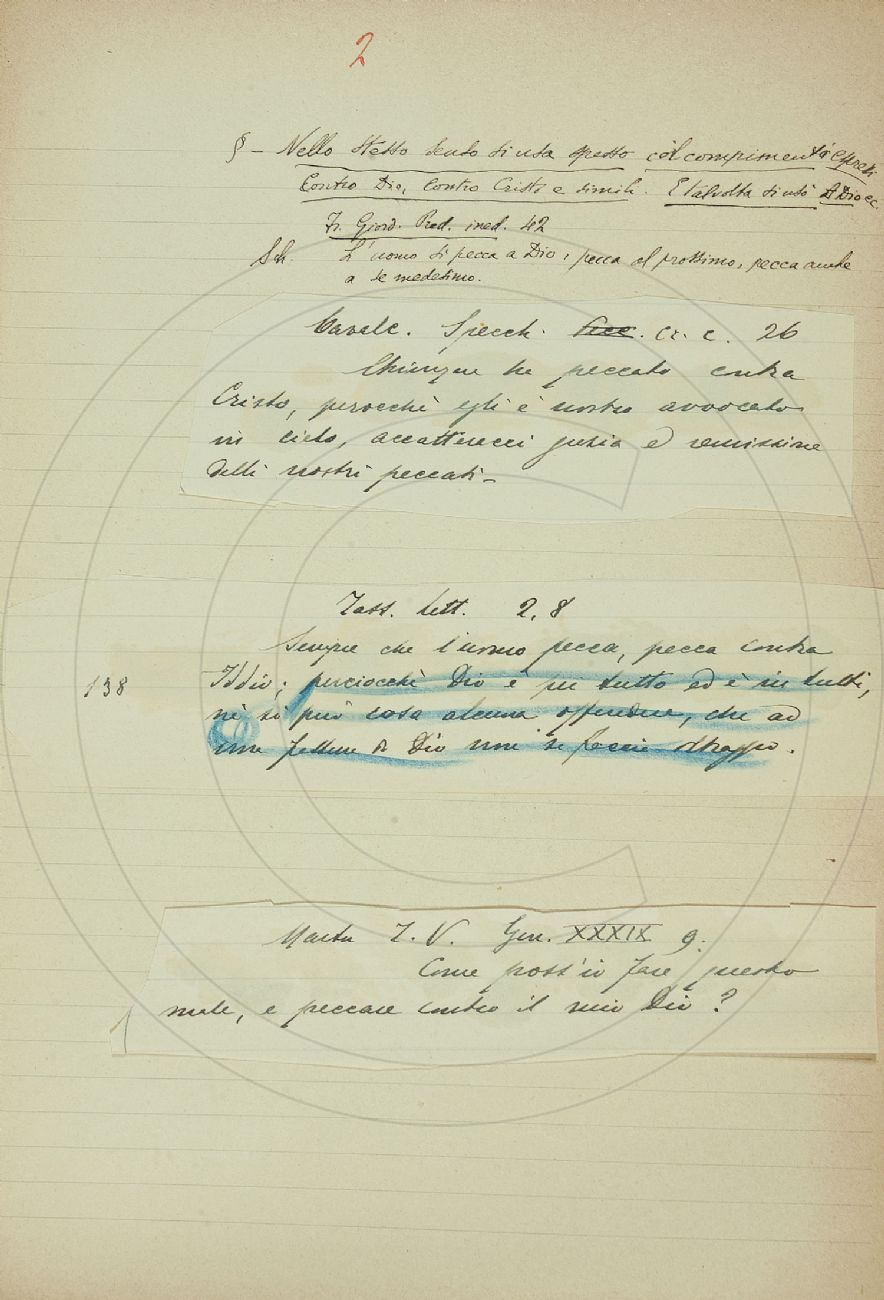 2
§ – Nello stesso senso si usa spesso col compimenti espressi
Contro Dio, Contro Cristo e simili. E talvolta si usò A Dio ec.
Fr. Giord. Pred. ined. 42
Sch. L'uomo si pecca a Dio, pecca al prossimo, pecca anche
a se medesimo.
Cavalc. Specch. Cr. c. 26
Chiunque ha peccato contra
Cristo, perocchè egli è nostro avvocato
in cielo, accatteracci grazia e remissione
delli nostri peccati.
Tass. Lett. 2, 8
Sempre che l'uomo pecca, pecca contra
138 Iddio; perciocchè Dio è in tutto ed è in tutti,
nè si può cosa alcuna offendere, che ad
una fattura di Dio non si faccia oltraggio.
Martin T. V. Gen. XXXIX 9.
Come poss'io fare questo
male, e peccare contro il mio Dio?